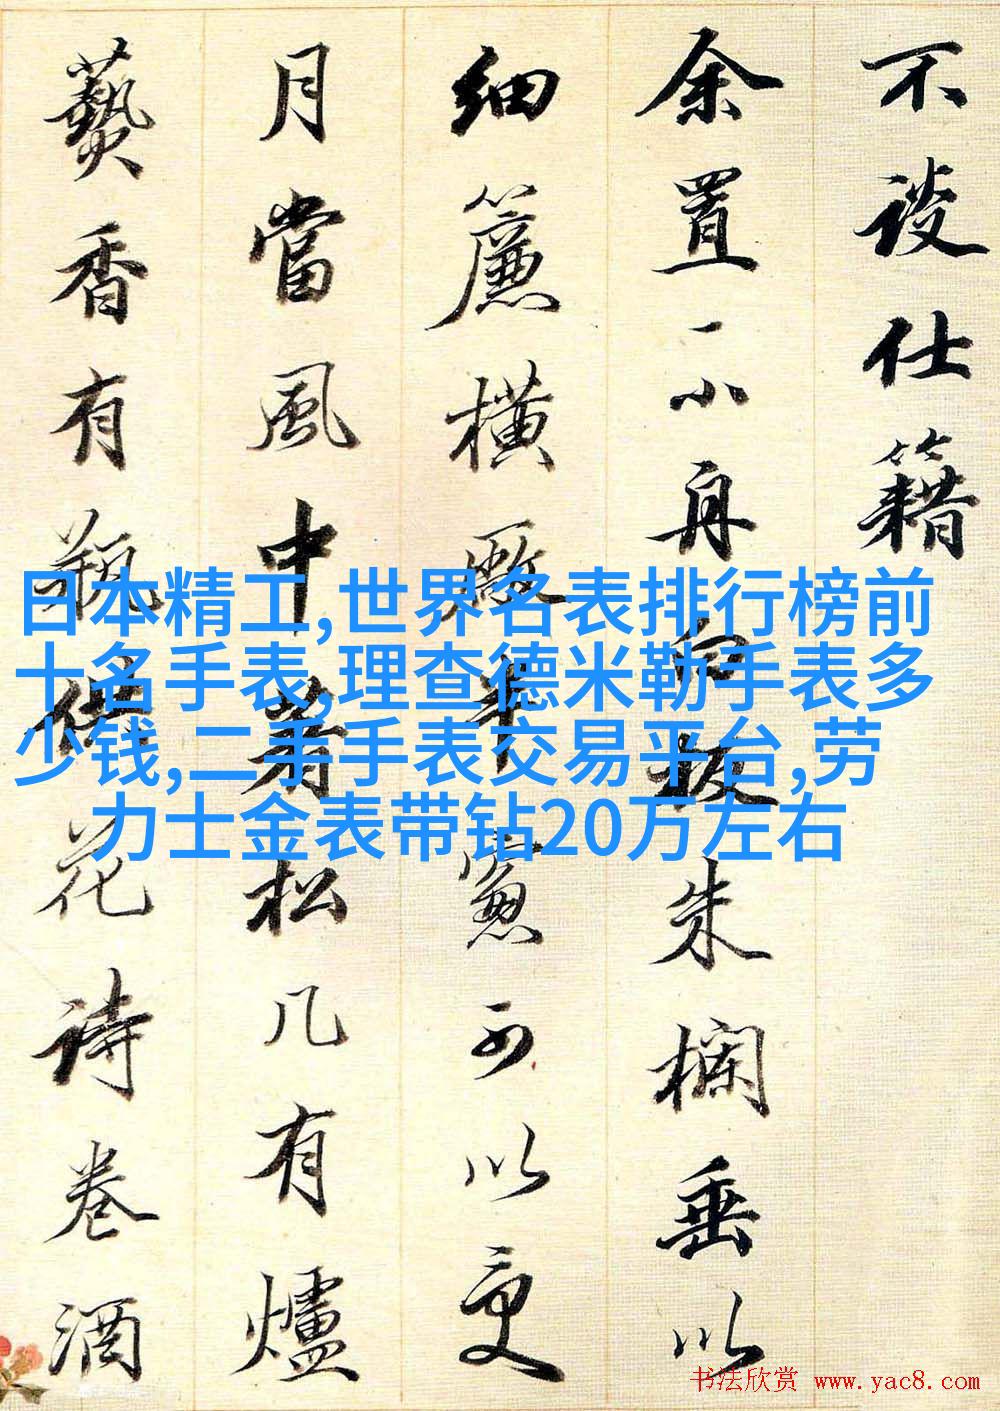 不談仕籍
余置一小舟白板朱欄垂以
細簾橫厰半窻可以受
月當風中著松几有爐
爇香有瓶供花詩卷酒
日本精工,世界名表排行榜前
十名手表,理查德米勒手表多
少钱,二手手表交易平台,劳
力士金表带钻20万左右
书法欣赏 www.yac8.com